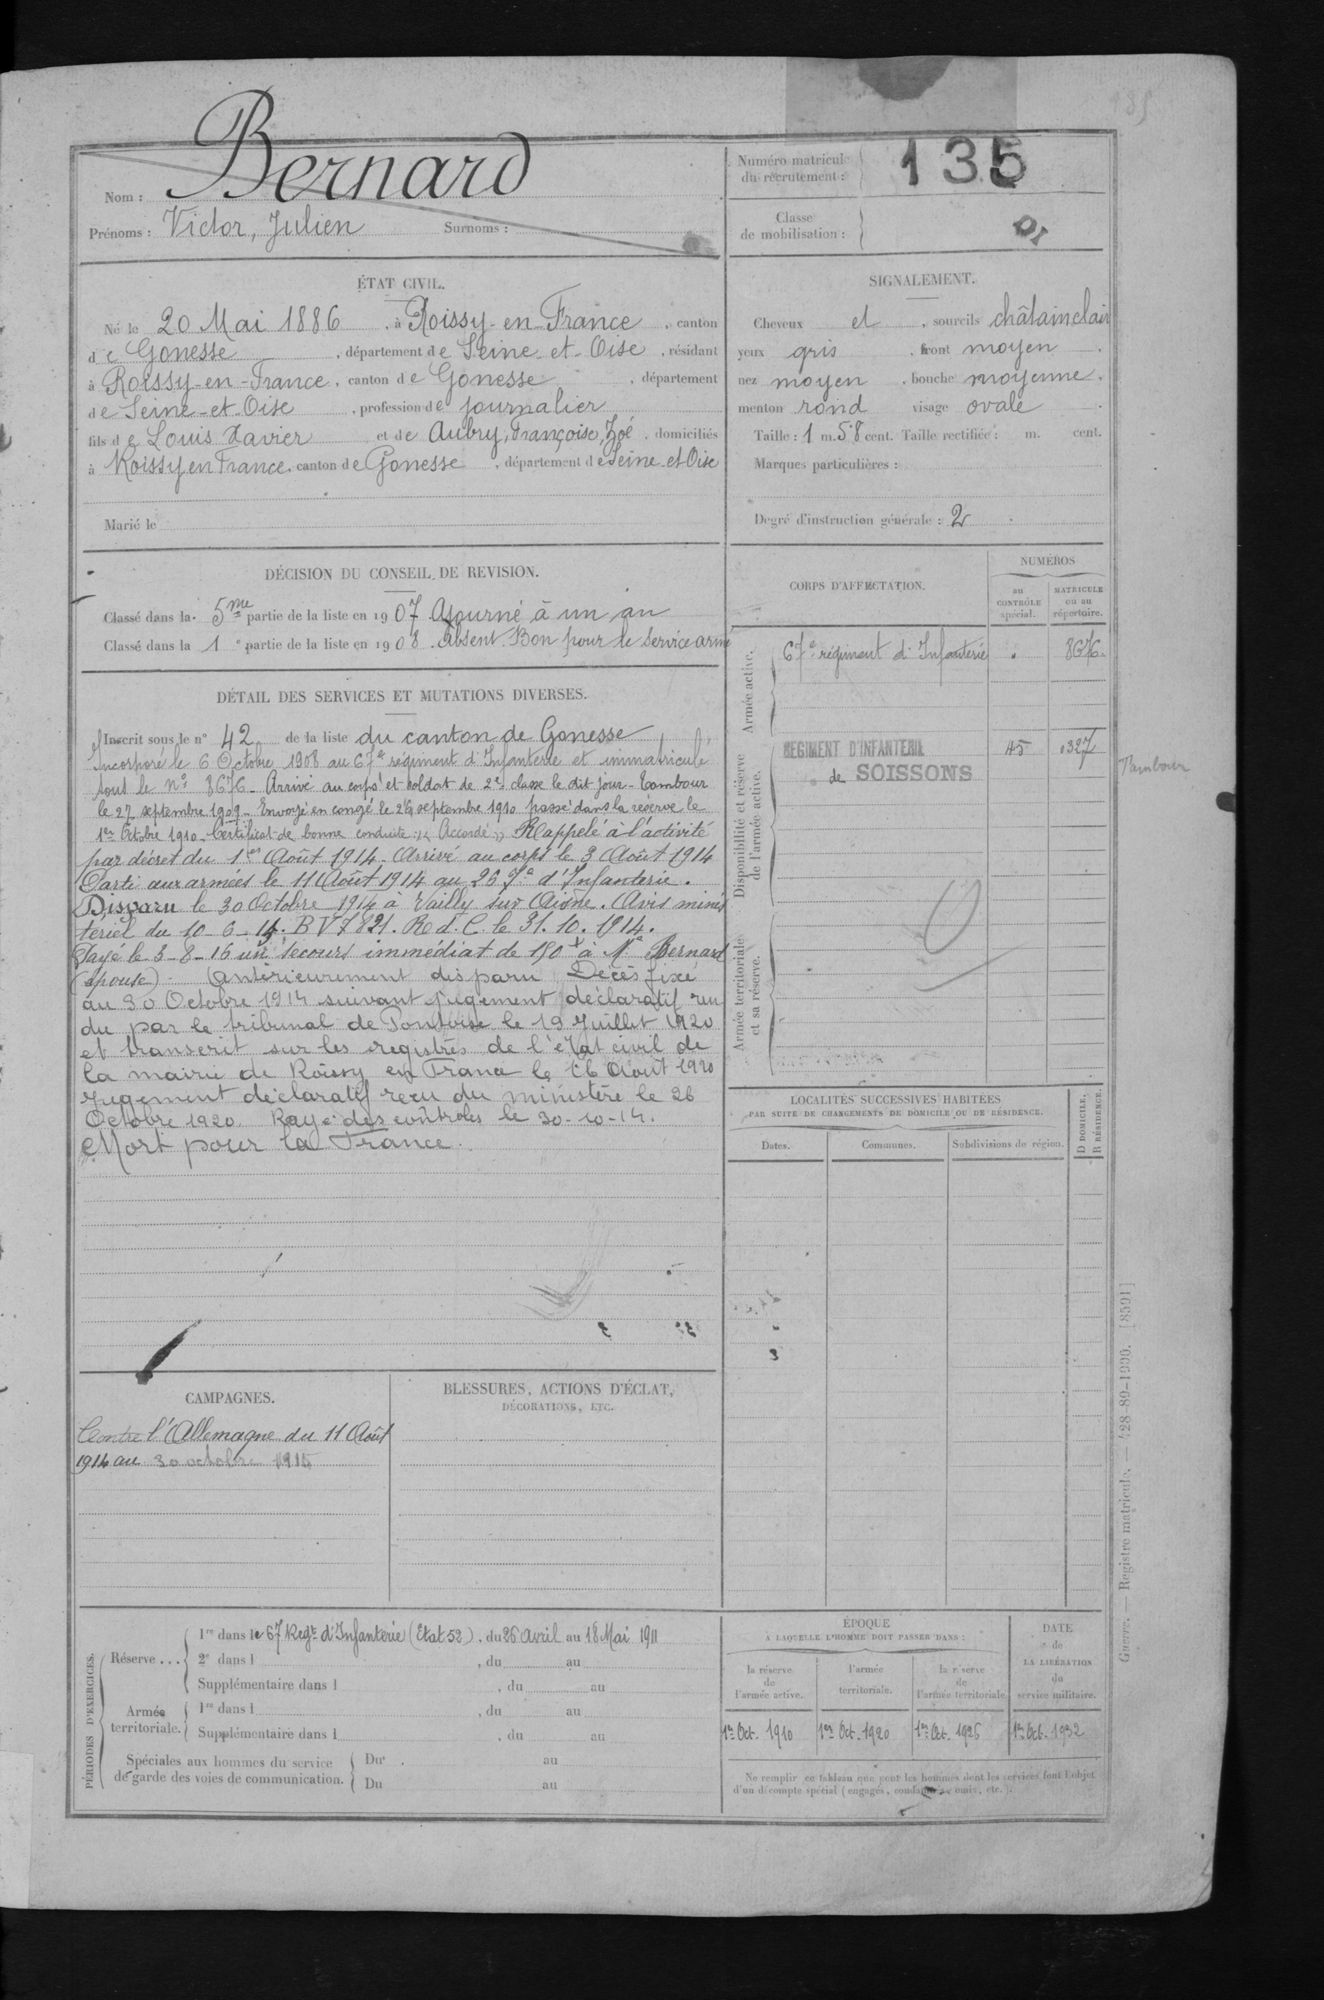 Nom : Bernard
Prénoms : Victor, Julien Surnoms :
Numéro matricule du recrutement : 135
Classe de mobilisation :
ÉTAT CIVIL.
Né le 20 Mai 1886, à Roissy-en-France, canton
de Gonesse, département de Seine-et-Oise, résidant
à Roissy-en-France, canton de Gonesse, département
de Seine-et-Oise, profession de journalier
fils de Louis Xavier et de Aubry, Françoise, Zoé, domiciliés
à Roissy en France, canton de Gonesse, département de Seine-et-Oise
Marié le
SIGNALEMENT.
Cheveux et, sourcils châtain clair
yeux gris, front moyen
nez moyen, bouche moyenne,
menton rond visage ovale
Taille : 1 m. 58 cent. Taille rectifiée : m. cent.
Marques particulières :
Degré d'instruction générale : 2
DÉCISION DU CONSEIL DE REVISION.
Classé dans la 5me partie de la liste en 1907 Ajourné à un an
Classé dans la 1e partie de la liste en 1908. Absent. Bon pour le service armé
DÉTAIL DES SERVICES ET MUTATIONS DIVERSES.
Inscrit sous le n° 42 de la liste du canton de Gonesse
Incorporé le 6 Octobre 1908 au 67e régiment d'Infanterie et immatriculé
sous le n° 8676 - Arrivé au corps et soldat de 2e classe le dit jour - Tambour
le 27 septembre 1909 - Envoyé en congé le 26 septembre 1910 passé dans la réserve le
1er Octobre 1910. Certificat de bonne conduite "Accordé" Rappelé à l'activité
par décret du 1er Août 1914. Arrivé au corps le 3 Août 1914
Parti aux armées le 11 Août 1914 au 267e d'Infanterie.
Disparu le 30 Octobre 1914 à Vailly sur Aisne. (Avis minis
tériel du 10-6-15. BV7821. R.d.C. le 31.10.1914.
Payé le 3-8-16 un secours immédiat de 150f à Me Bernard
(épouse). Antérieurement disparu Décès fixé
au 30 Octobre 1914 suivant jugement déclaratif ren
du par le tribunal de Pontoise le 19 Juillet 1920
et transcrit sur les registres de l'état civil de
la mairie de Roissy en France le 16 Août 1920
Jugement déclaratif reçu du ministère le 26
Octobre 1920 Rayé des contrôles le 30-10-14.
Mort pour la France.
CORPS D'AFFECTATION.
NUMÉROS
au CONTRÔLE spécial.
MATRICULE ou au répertoire.
Armée active.
67e régiment d'Infanterie 8676
Disponibilité et réserve de l'armée active.
RÉGIMENT D'INFANTERIE 45 0327
de SOISSONS
Tambour
Armée territoriale et sa réserve.
LOCALITÉS SUCCESSIVES HABITÉES
PAR SUITE DE CHANGEMENTS DE DOMICILE OU DE RÉSIDENCE.
D DOMICILE, R RÉSIDENCE.
Dates. Communes. Subdivisions de région.
CAMPAGNES.
Contre l'Allemagne du 11 Août
1914 au 30 octobre 1914
BLESSURES, ACTIONS D'ÉCLAT,
DÉCORATIONS, ETC.
PÉRIODES D'EXERCICES.
Réserve ...
1re dans le 67 Régt d'Infanterie (Etat 52), du 26 avril au 18 Mai 1911
2e dans l , du au
Supplémentaire dans l , du au
Armée territoriale.
1re dans l , du au
Supplémentaire dans l , du au
Spéciales aux hommes du service de garde des voies de communication.
Du au
Du au
ÉPOQUE
À LAQUELLE L'HOMME DOIT PASSER DANS :
la réserve de l'armée active.
l'armée territoriale.
la réserve de l'armée territoriale.
DATE de LA LIBÉRATION du service militaire.
1er Oct. 1910 1er Oct. 1920 1er Oct. 1926 1er Oct. 1932
Ne remplir ce tableau que pour les hommes dont les services font l'objet
d'un décompte spécial (engagés, omis, etc.).
Guerre. — Registre matricule. — 428-89-1900. [8591]